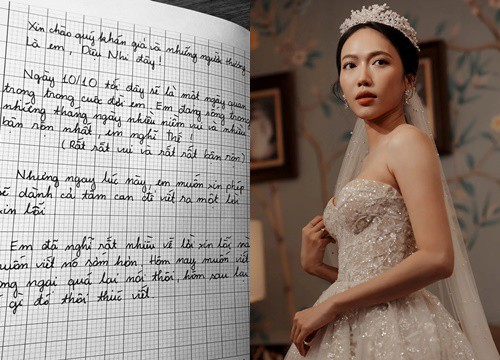 Xin chào quý khán giả và những người thương
Là em, Dâu Nhi đây!
Ngày 10/10 tới đây sẽ là một ngày quan
trọng trong cuộc đời em. Em đang sống trong
những tháng ngày nhiều niềm vui và nhiều
bận rộn nhất, em nghĩ thế!
(Rất rất vui và rất rất bận rộn)
Nhưng ngay lúc này, em muốn xin phép
sẽ dành cả tâm can để viết ra một lời
xin lỗi
Em đã nghĩ rất nhiều về lời xin lỗi này
muốn viết nó sớm hơn. Hôm nay muốn viết
ngại quá lại nói thôi, hôm sau lại
gì đó thôi thúc viết.